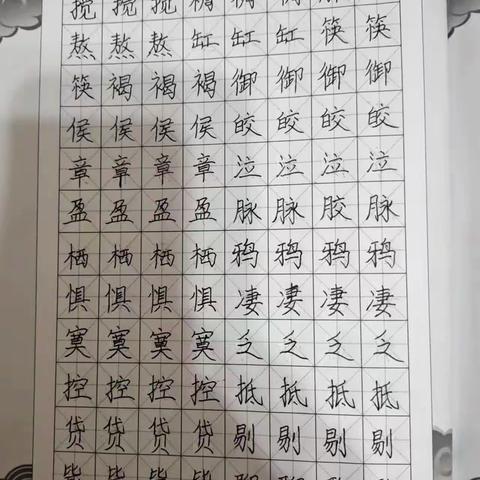 搅 搅 搅
熬 熬 熬 缸 缸 缸 筷 筷
筷 褐 褐 褐 御 御 御 御
侯 侯 侯 侯 皎 皎 皎 皎
章 章 章 章 泣 泣 泣 泣
盈 盈 盈 盈 脉 脉 胶 脉
栖 栖 栖 栖 鸦 鸦 鸦 鸦
惧 惧 惧 惧 凄 凄 凄 凄
寞 寞 寞 寞 乏 乏 乏 乏
控 控 控 控 抵 抵 抵 抵
贷 贷 贷 贷 剔 剔 剔 剔